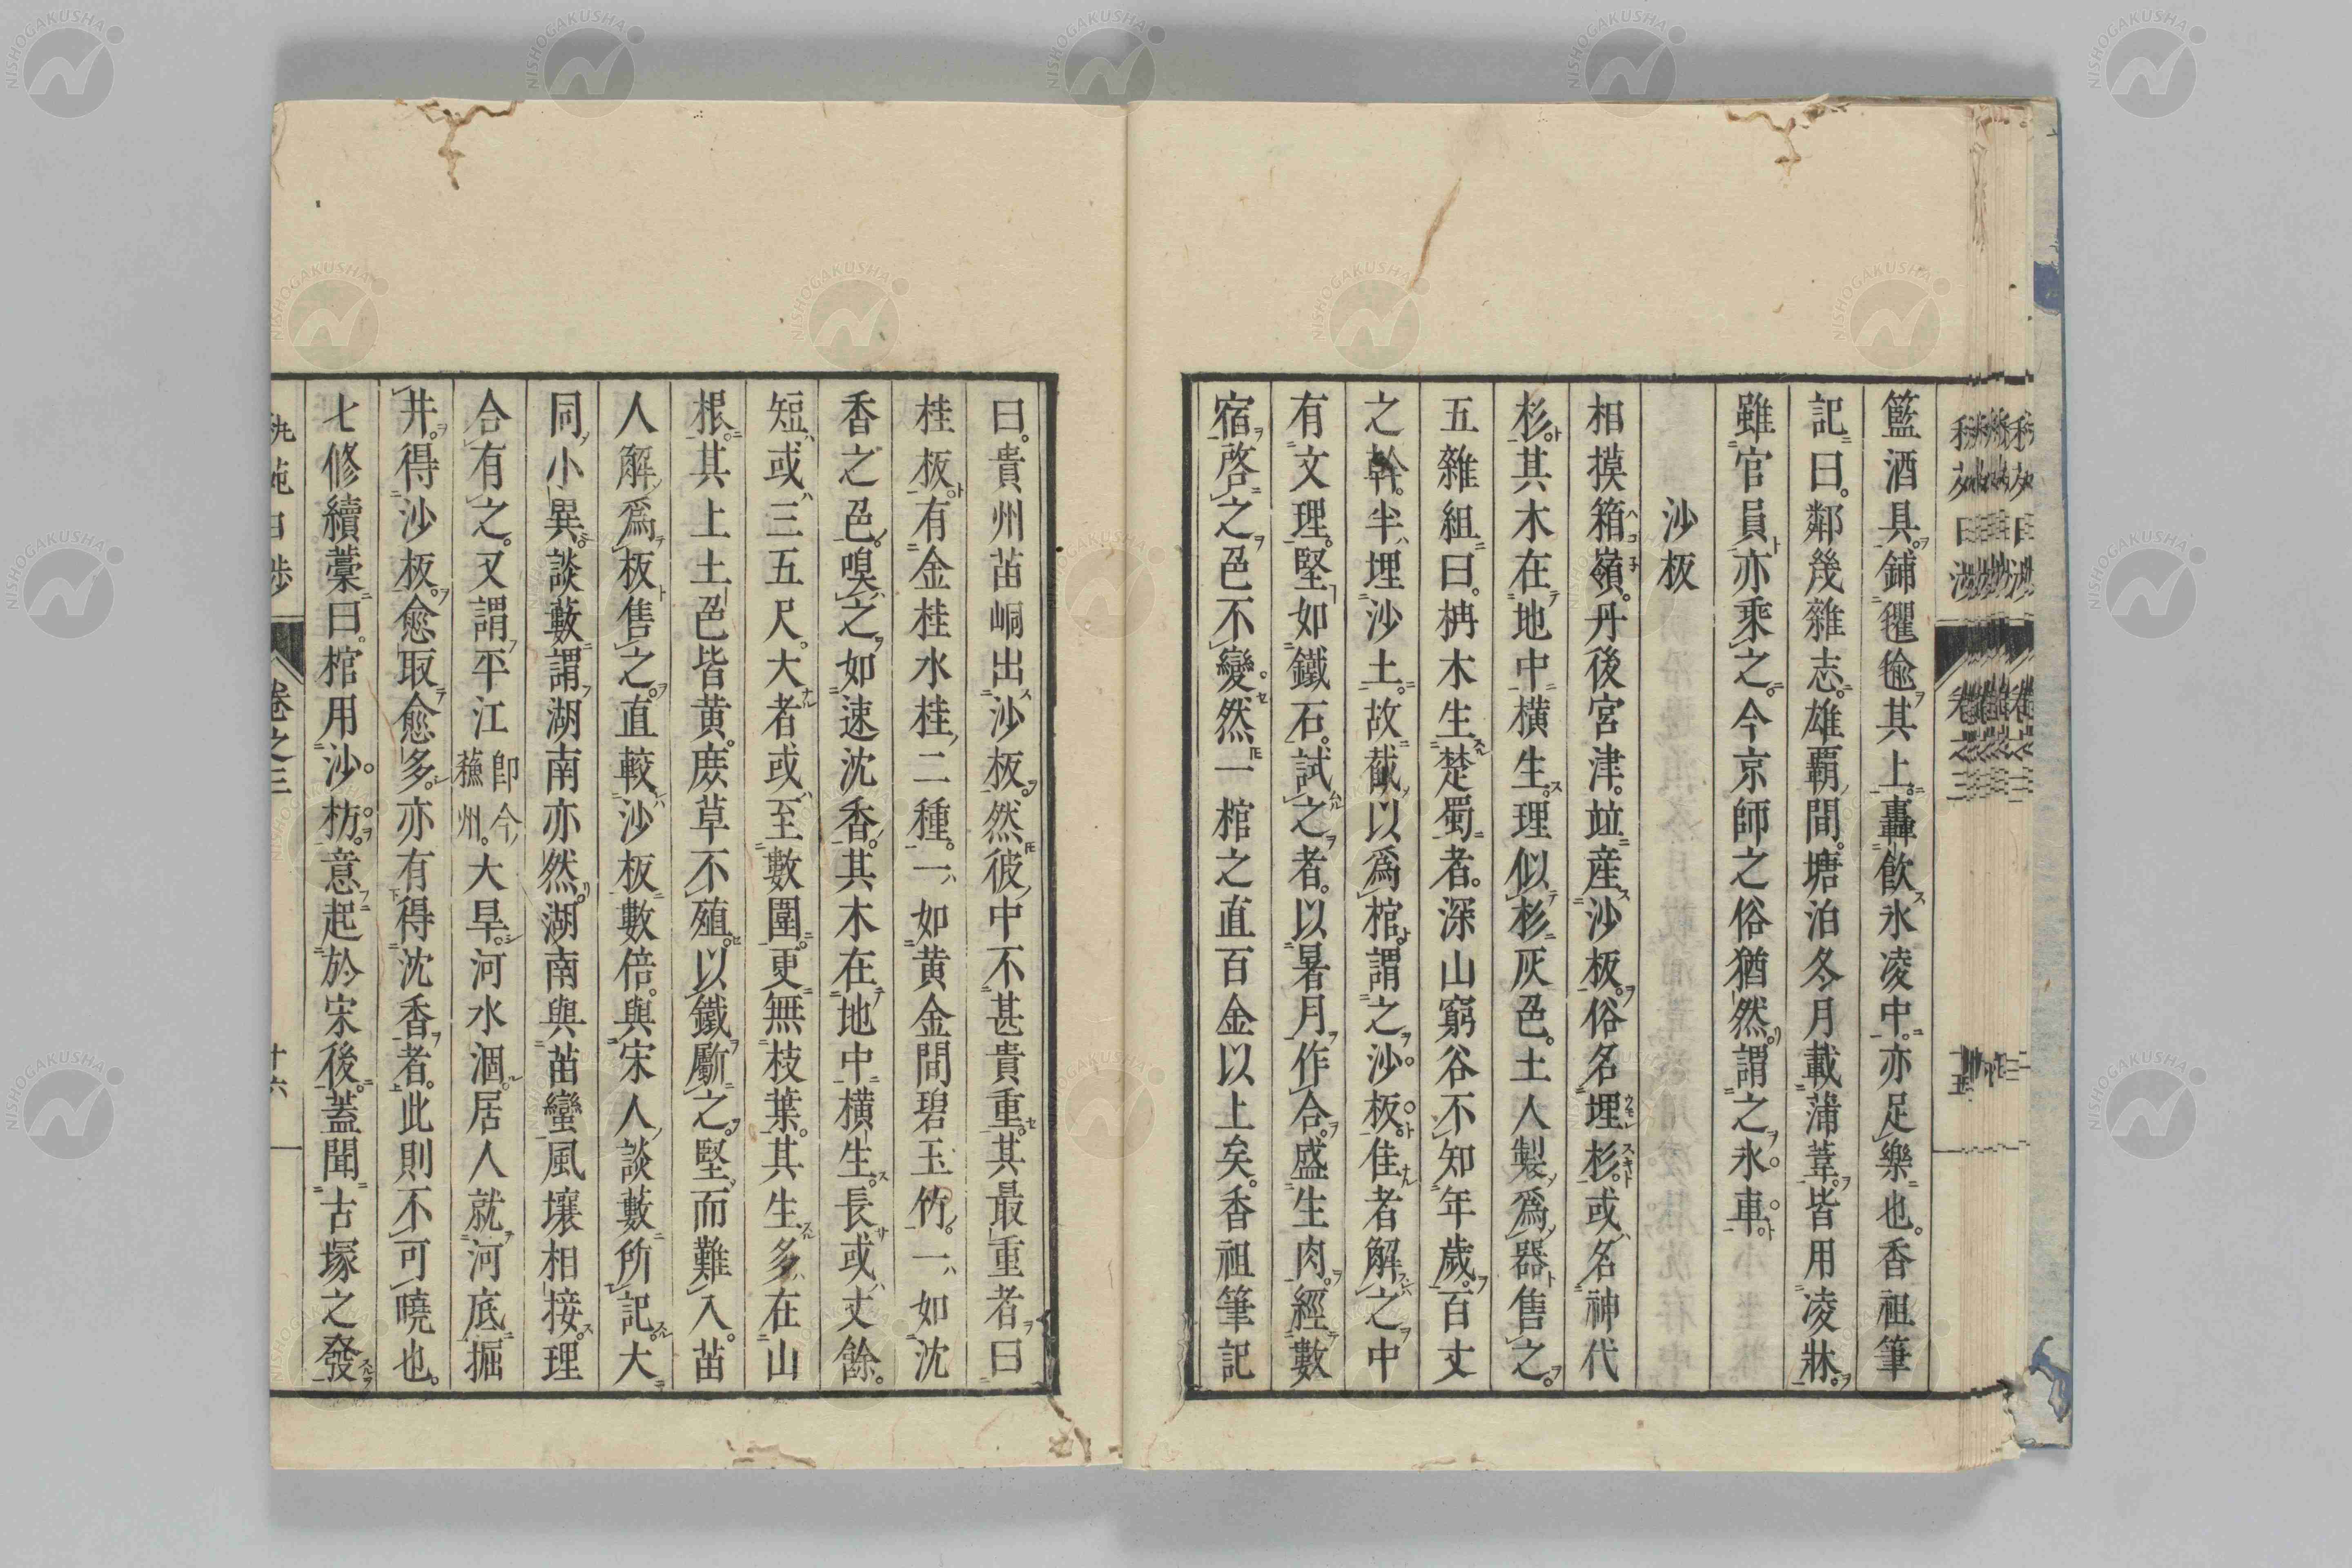 籃酒具。鋪氍毹其上。轟飲氷凌中。亦足樂也。香祖筆
記曰。鄰幾雜志。雄覇間。塘泊冬月載蒲葦。皆用凌牀。
雖官員亦乘之。今京師之俗猶然。謂之氷車。
沙板
相摸箱嶺。丹後宮津。竝産沙板。俗名埋杉。或名神代
杉。其木在地中橫生。理似杉灰色。土人製爲器售之。
五雜組曰。柟木生楚蜀者。深山窮谷不知年歲。百丈
之幹。半埋沙土。故截以爲棺。謂之沙板。佳者解之中
有文理。堅如鐵石。試之者。以暑月作合。盛生肉。經數
宿啓之。色不變。然一棺之直百金以上矣。香祖筆記
曰。貴州苗峒出沙板。然彼中不甚貴重。其最重者曰
桂板。有金桂水桂二種。一如黄金間碧玉竹。一如沈
香之色。嗅之如速沈香。其木在地中橫生。長或丈餘。
短或三五尺。大者或至數圍。更無枝葉。其生多在山
根。其上土色皆黄。庶草不殖。以鐵斸之。堅而難入。苗
人解爲板售之。直較沙板數倍。與宋人談藪所記。大
同小異。談藪謂湖南亦然。湖南與苗蠻風壤相接。理
合有之。又謂平江即今蘓州。大旱。河水涸。居人就河底掘
井。得沙板。愈取愈多。亦有得沈香者。此則不可曉也。
七修續藁曰。棺用沙枋。意起於宋後。蓋聞古塚之發
卷之三
十六